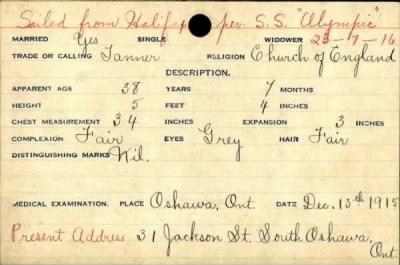 Sailed from Halifax per. S. S. "Olympic"
MARRIED Yes SINGLE WIDOWER 23-7-16
TRADE OR CALLING Tanner RELIGION Church of England
DESCRIPTION.
APPARENT AGE 38 YEARS 7 MONTHS
HEIGHT 5 FEET 4 INCHES
CHEST MEASUREMENT 34 INCHES EXPANSION 3 INCHES
COMPLEXION Fair EYES Grey HAIR Fair
DISTINGUISHING MARKS Nil.
MEDICAL EXAMINATION. PLACE Oshawa, Ont. DATE Dec. 13th 1915
Present Address. 31 Jackson St. South Oshawa,
Ont.